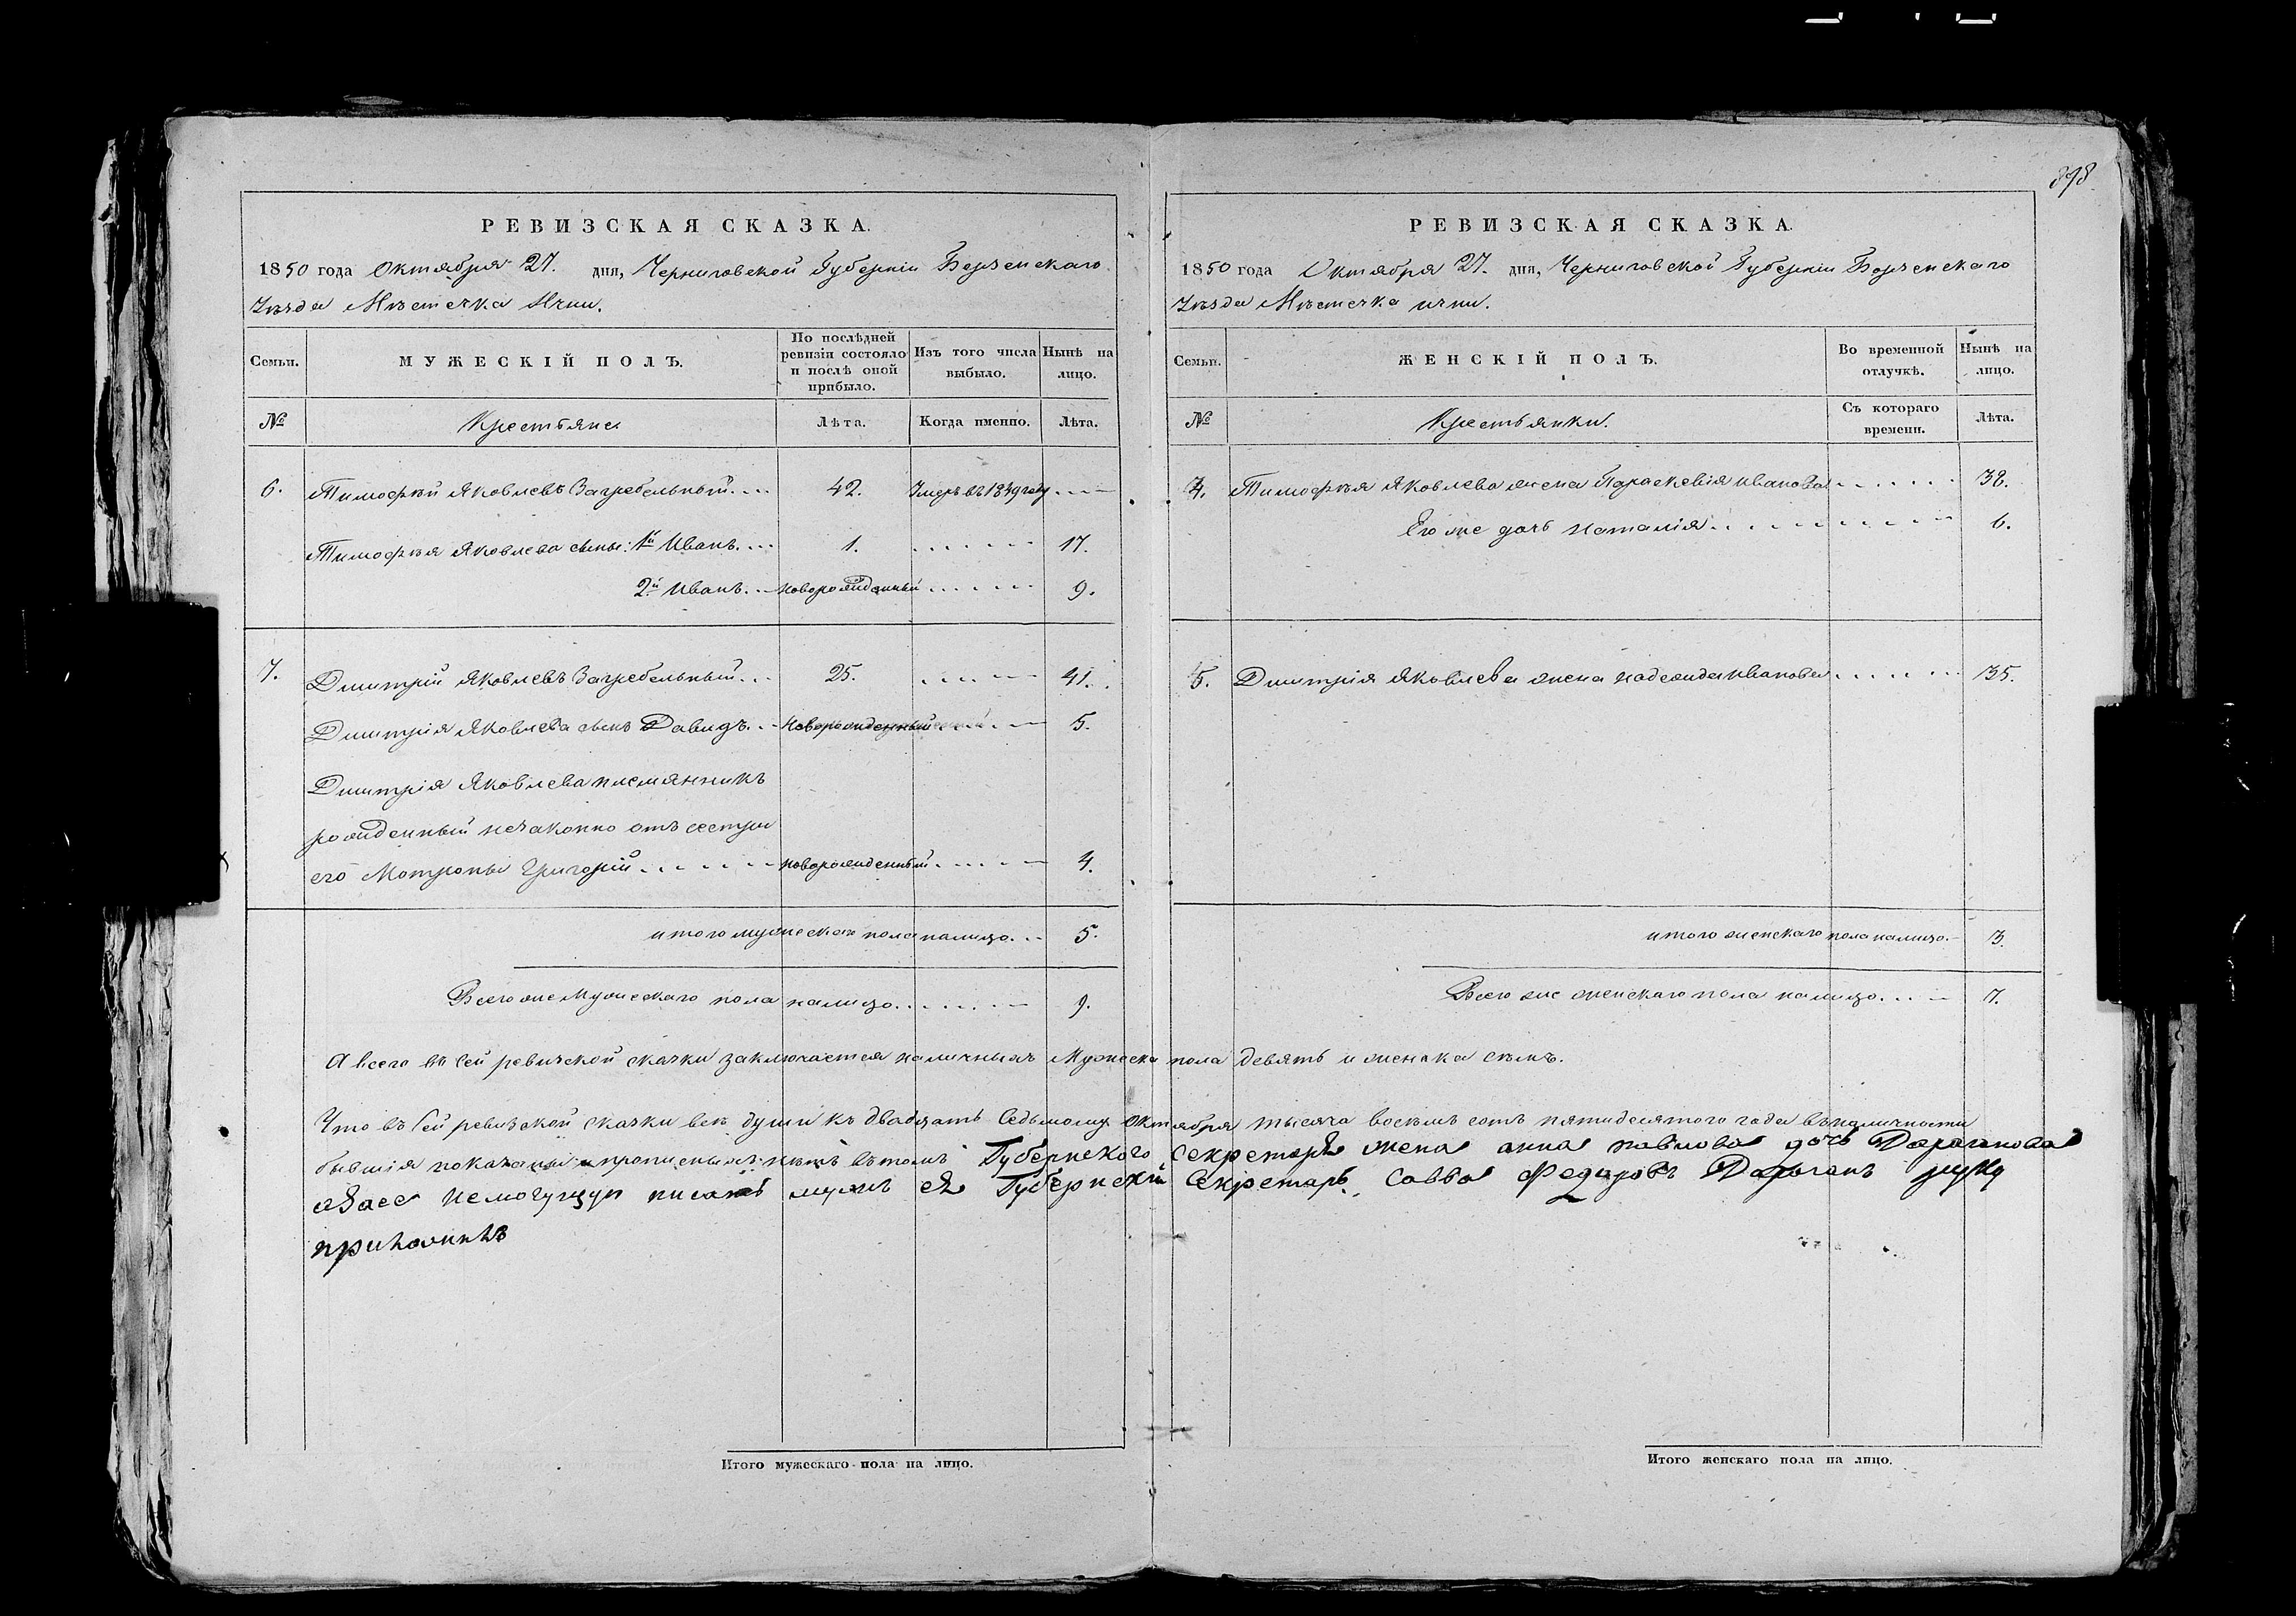 898.
РЕВИЗСКАЯ СКАЗКА.
1850 года Октября 27. дня, Черниговской Губерніи Борзенскаго
Уѣзда Мѣстечка Ични.
Семьи. МУЖЕСКІЙ ПОЛЪ. По послѣдней ревизіи состояло и послѣ оной прибыло. Изъ того числа выбыло. Нынѣ на лицо.
№ Крестьяне Лѣта. Когда именно. Лѣта.
6. Тимофѣй Яковлевъ Загребельный.... 42. Умеръ въ 1849 году....
Тимофѣя Яковлева сыны: 1й Иванъ.... 1. ...... 17.
2й Иванъ... новорожденный...... 9.
7. Дмитрій Яковлевъ Загребельный... 25. ...... 41.
Дмитрія Яковлева сынъ Давидъ... новорожденный...... 5.
Дмитрія Яковлева племянникъ
рожденный незаконно отъ сестры
его Мотроны Григорій...... новорожденный...... 4.
итого мужескаго пола налицо... 5.
Всего же Мужескаго пола налицо....... 9.
РЕВИЗСКАЯ СКАЗКА.
1850 года Октября 27. дня, Черниговской Губерніи Борзенскаго
Уѣзда Мѣстечка ични.
Семьи. ЖЕНСКІЙ ПОЛЪ. Во временной отлучкѣ. Нынѣ на лицо.
№ Крестьянки. Съ котораго времени. Лѣта.
4. Тимофѣя Яковлева жена Параскевія иванова....... 38.
Его же дочь наталія.......... 6.
5. Дмитрія Яковлева жена надежда иванова...... 35.
итого женскаго пола налицо.— 3.
Всего же женскаго пола налицо.... 7.
А всего въ сей ревизской сказки заключается наличныхъ Мужеска пола девять и женска семь.
Что въ сей ревизской сказки всѣ души къ двадцать Седьмому Октября тысяча восемь сотъ пятидесятого года въ наличности
бывшія показаны и прописныхъ нѣтъ въ томъ Губернского Секретаря жена анна павлова дочь Дараганова
а Заее немогущую писать мужъ ея Губернский Секретарь Савва Федоровъ Дараганъ руку
приложилъ
Итого мужескаго пола на лицо.
Итого женскаго пола на лицо.